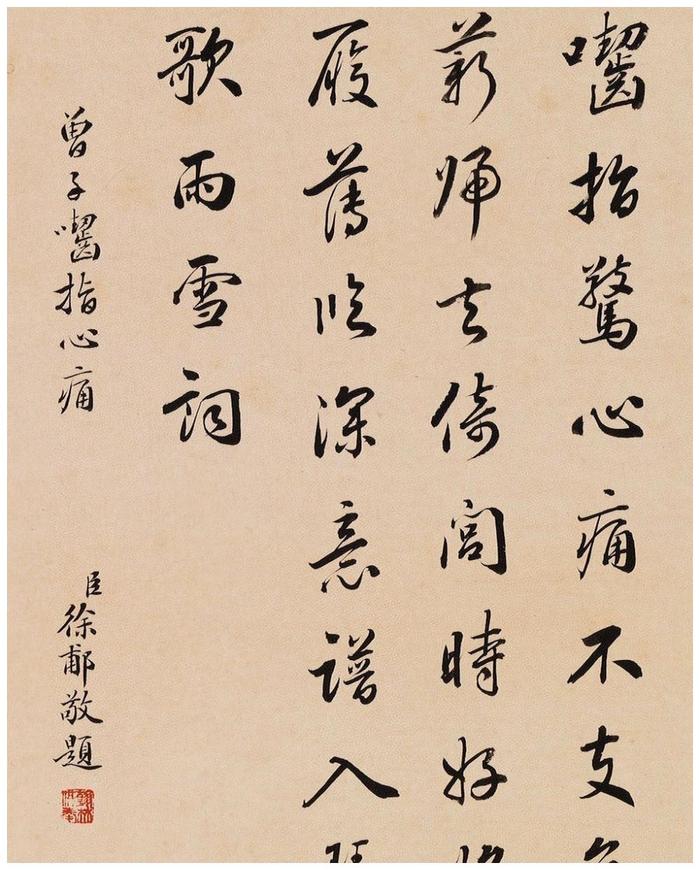 囓指驚心痛不支
薪歸去倚閭時好
履薄臨深意譜入
歌雨雪詞
曾子囓指心痛
臣徐郙敬題
翰林供奉